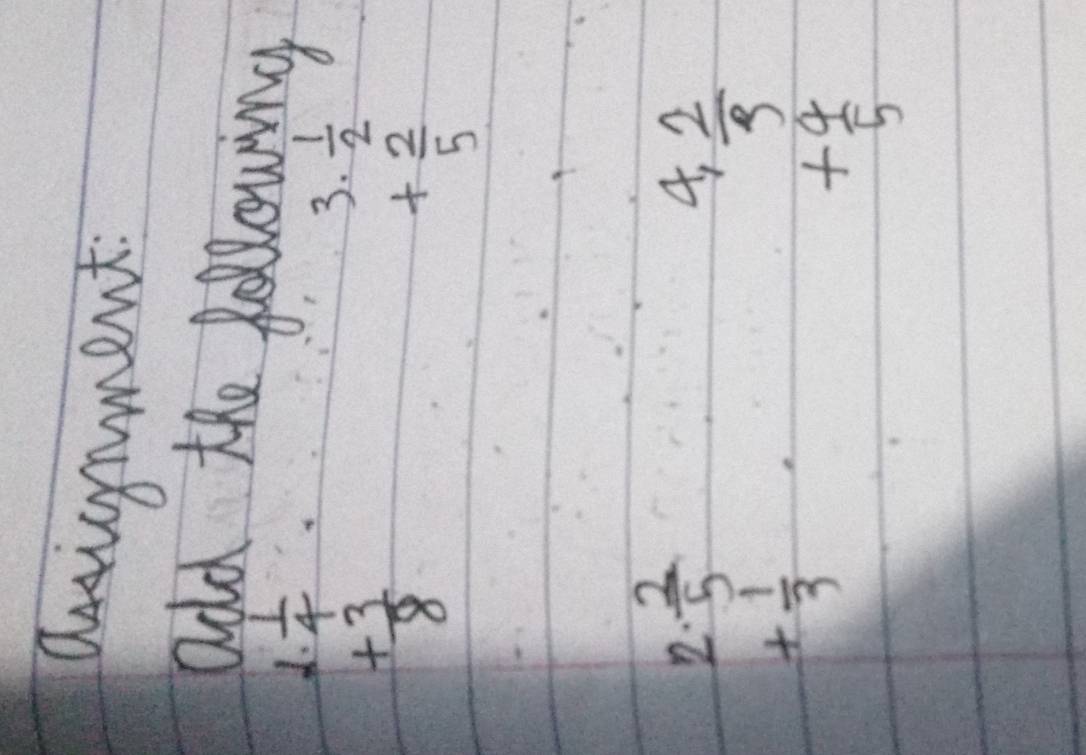 Assignment:
Add the following
1. 1/4 3. 1/2
+ 3/8 + 2/5
2. 2/5 4, 2/3
+ 1/3 + 4/5